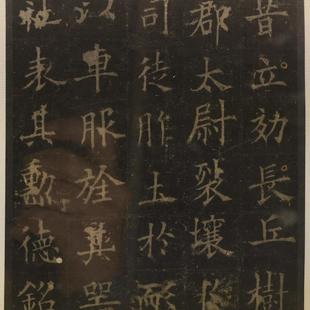 昔立効長丘樹
郡太尉裂壤於
司徒胙土於耏
以車服旌其器
社表其勳德銘